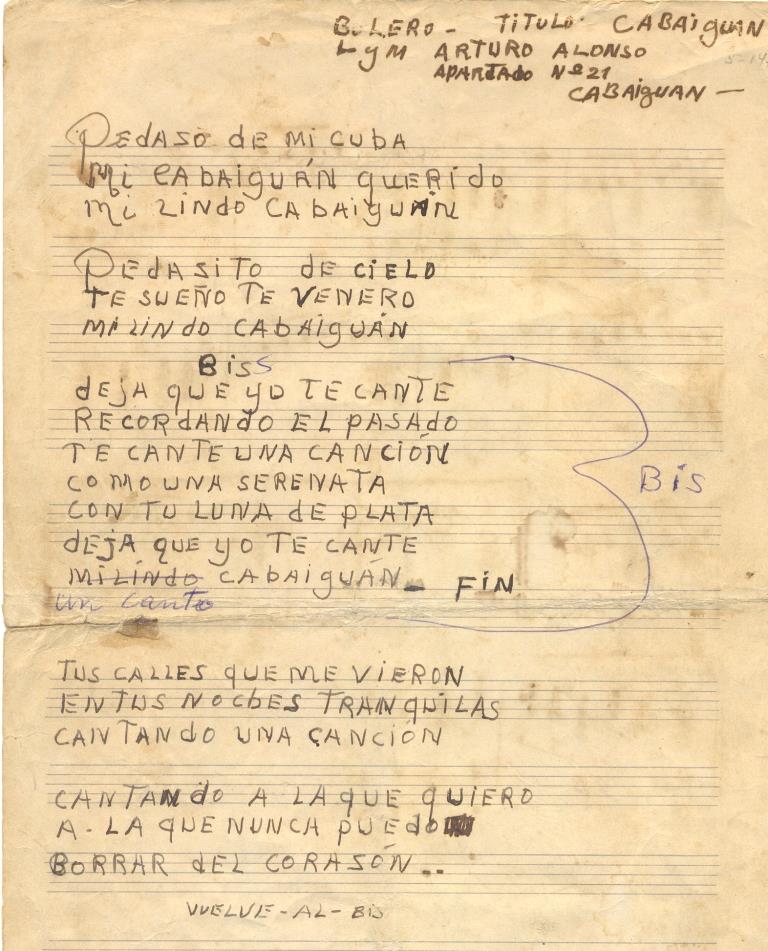 BOLERO - TITULO: CABAiguAN
L y M ARTURO ALONSO
APARTADO Nº 21
CABAiguAN —
PEdASO dE Mi CUbA
Mi CAbAiguÁN quERido
Mi LiNdO CAbAiguAN
PEdASiTO dE CiELO
TE SUEÑO TE VENERO
Mi LiNdO CAbAiguÁN
BiSS
dEjA quE yO TE CANTE
RECORdANdO EL pASAdO
TE CANTE UNA CANCiÓN
COMO UNA SERENATA
CON TU LUNA dE pLATA
BiS
dEjA quE yO TE CANTE
Mi LiNdO CAbAiguÁN - FiN
un canto
TUS CALLES quE ME ViERON
EN TUS NOChES TRANquiLAS
CANTANdO UNA CANCiON
CANTANdO A LA quE quiERO
A - LA quE NUNCA puEdO
BORRAR dEL CORASÓN..
VUELVE - AL - BiS